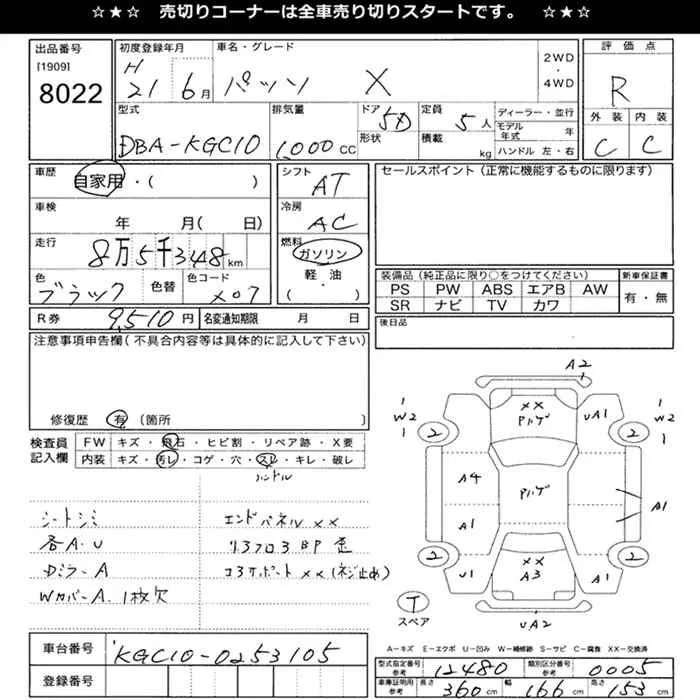 ☆★☆ 売切りコーナーは全車売り切りスタートです。 ☆★☆
出品番号
[1909]
8022
初度登録年月
H
21 6月
車名・グレード
パッソ X
2WD
・
4WD
評価点
R
外装 内装
C C
型式
DBA-KGC10
排気量
1,000 CC
ドア 5D
形状
定員 5人
積載 kg
ディーラー・並行
モデル年式 年
ハンドル 左・右
車歴
自家用・( )
車検
年 月( 日)
走行
8万5千348km
色
ブラック
色替
色コード
X07
シフト
AT
冷房
AC
燃料
ガソリン
軽・油
( ・ )
セールスポイント(正常に機能するものに限ります)
装備品(純正品に限り○をつけてください)
PS PW ABS エアB AW
SR ナビ TV カワ
新車保証書
有・無
R券 9,510円
名変通知期限 月 日
後日品
注意事項申告欄(不具合内容等は具体的に記入して下さい)
修復歴 有 〔箇所 〕
検査員
記入欄
FW キズ・飛石・ヒビ割・リペア跡・X要
内装 キズ・汚レ・コゲ・穴・スレ・キレ・破レ
ハンドル
シートシミ
各A.U
Dミラー A
Wカバー A. 1枚欠
エンドパネル XX
リヌフロヌ BP 歪
コアサポート XX(ネジ止め)
車台番号 KGC10-0253105
登録番号
A2
1
W2
1
2
XX
Pハゲ
UA1
2
1
W2
1
A4
Pハゲ
A1
A1
2
U1
XX
A3
A1
2
T
スペア
UA2
A-キズ E-エクボ U-凹み W-補修跡 S-サビ C-腐食 XX-交換済
型式指定番号
参考
12480
類別区分番号
参考
0005
車庫証明用
参考
長さ 360cm 幅 166cm 高さ 153cm